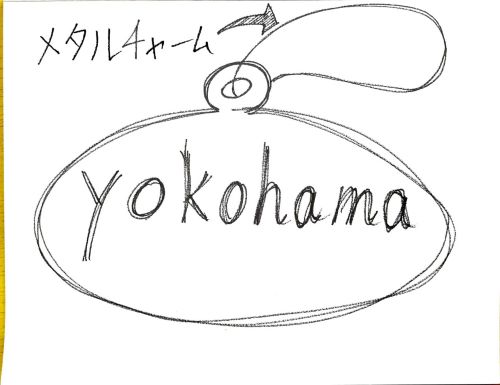 メタルチャーム
yokohama